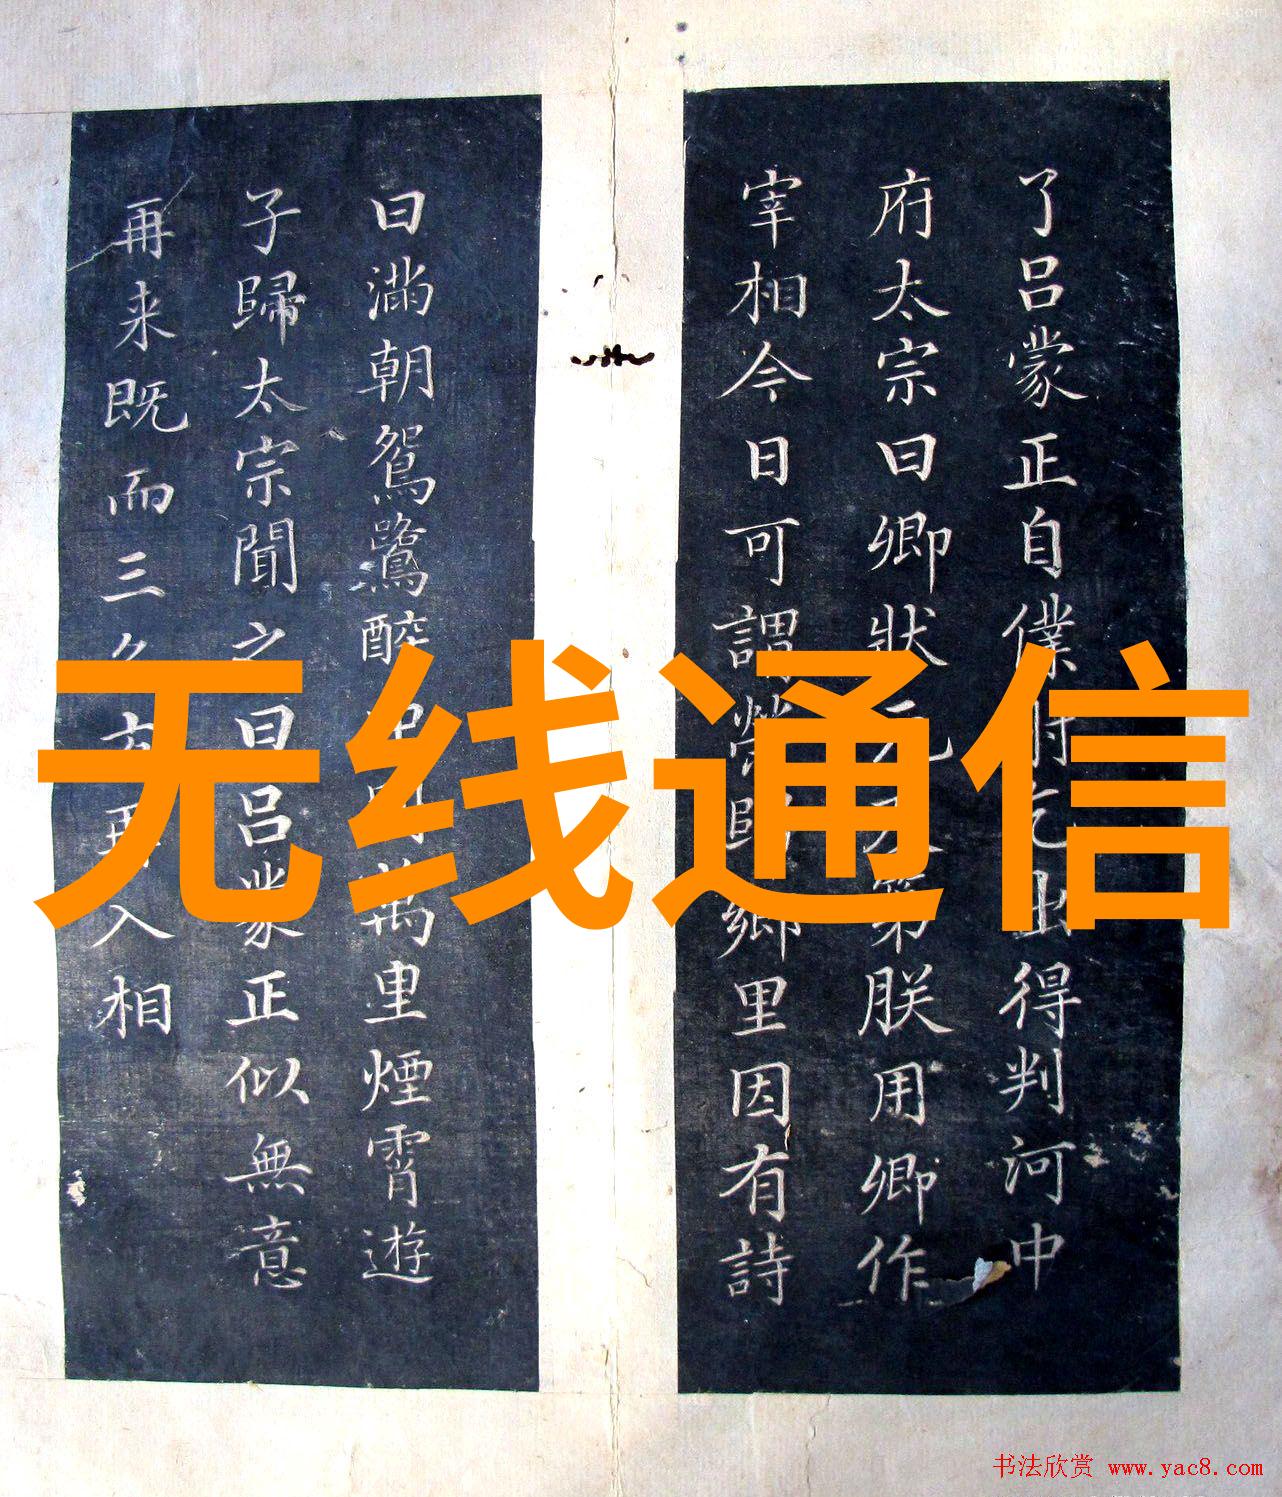 了吕蒙正自僕射乞出得判河中
府太宗曰卿狀元第朕用卿作
宰相今日可謂榮歸鄉里因有詩
曰滿朝鴛鷺醉萬里煙霄遊
子歸太宗聞之曰吕蒙正似無意
再来既而三入相
无线通信
书法欣赏 www.yac8.com